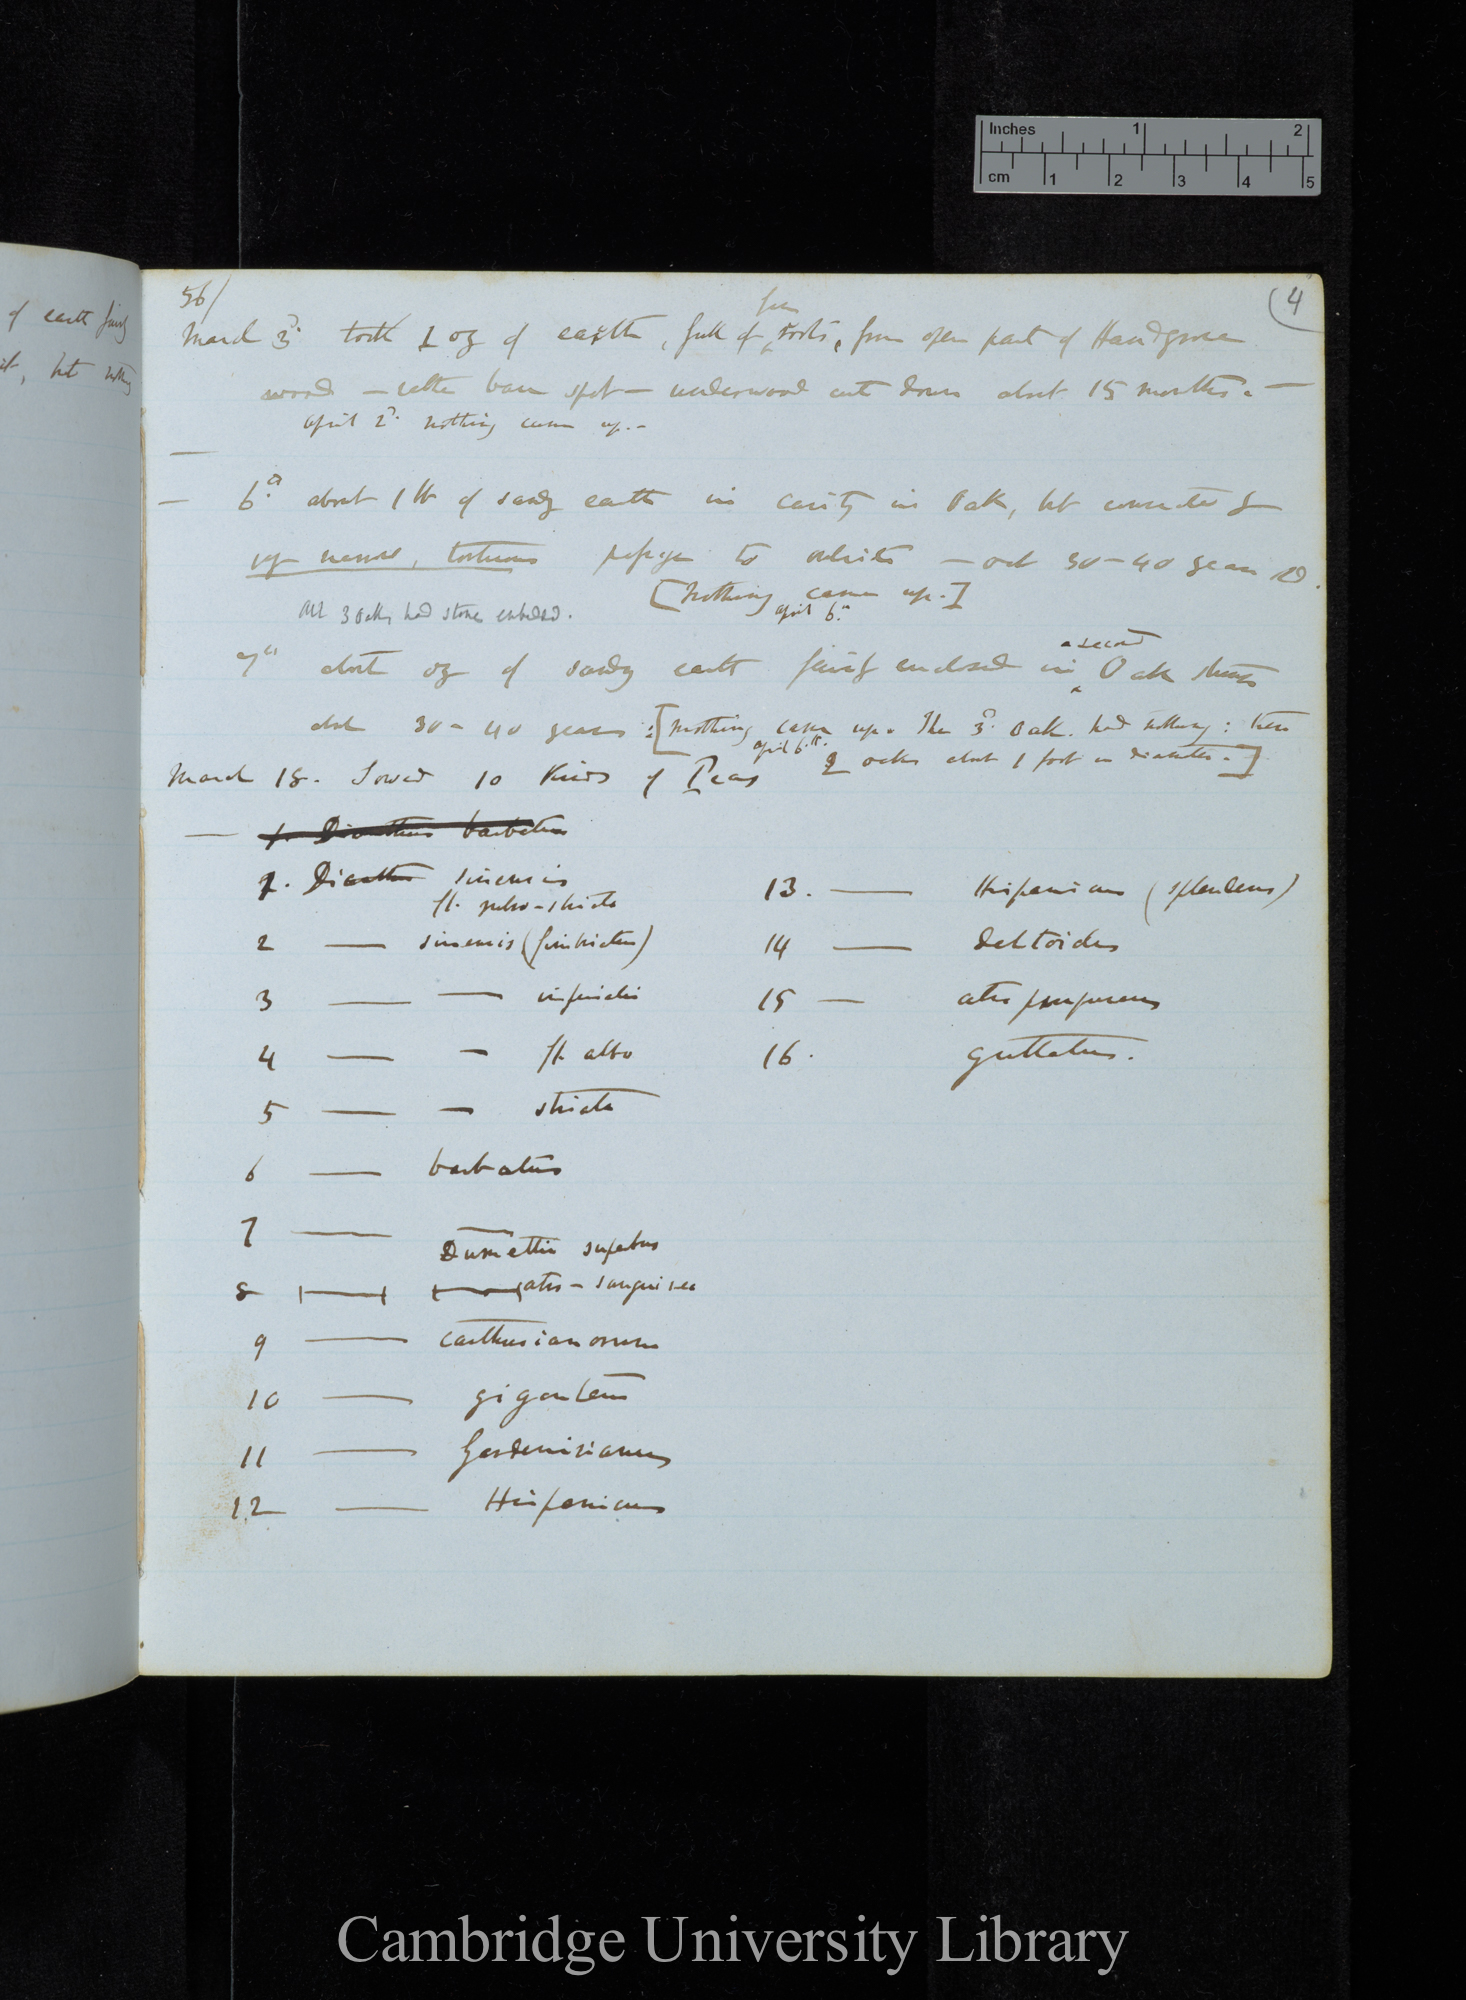 Inches 1 2
cm 1 2 3 4 5
of earth
it, but nothing
56/
(4
March 3d. took 1 oz of earth, full of fern roots, from open part of Handgrove
wood — rather bare spot — underwood cut down about 15 months. —
April 2d. nothing came up. —
— 6th about 1 lb of sandy earth in cavity in Oak, but connected by
very narrow, tortuous passage to outside — oak 30–40 years old.
[Nothing came up.]
April 6th
All 3 oaks had stones embedded.
7th about oz of sandy earth fairly enclosed in a second Oak
about 30–40 years: [nothing came up. The 3d. Oak had nothing: these
April 6th.
2 oaks about 1 foot in diameter.]
March 18. Sowed 10 kinds of Peas
— 1. Dianthus barbatus
1. Dianthus sinensis
fl. rubro-striato
2 — sinensis (fimbriatus)
3 — —
4 — — fl. albo
5 — — striata
6 — barbatus
7 — Dunnettii superbus
8 — — atro-sanguinea
9 — carthusianorum
10 — giganteus
11 — Gardenerianus
12 — Hispanicus
13. — Hispanicus (splendens)
14 — deltoides
15 — atropurpureus
16. guttatus.
Cambridge University Library